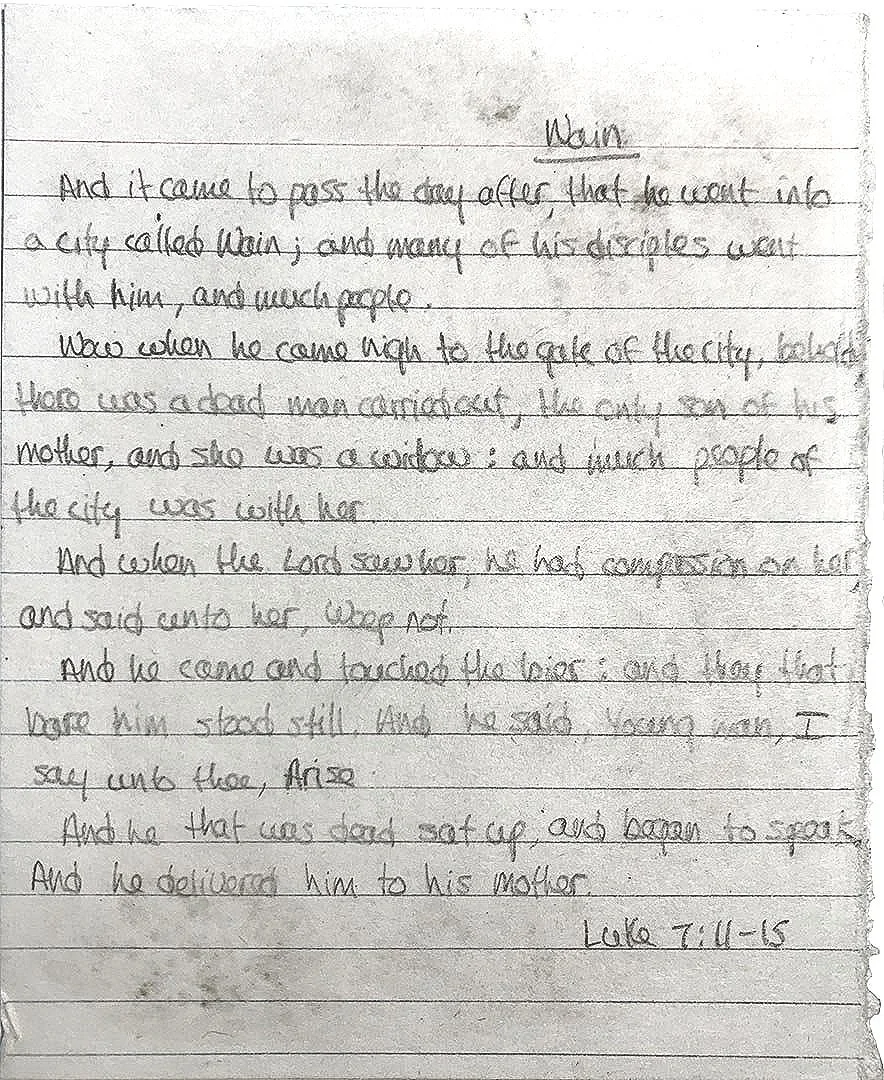 Nain
And it came to pass the day after, that he went into
a city called Nain; and many of his disciples went
with him, and much people.
Now when he came nigh to the gate of the city, behold
there was a dead man carried out, the only son of his
mother, and she was a widow: and much people of
the city was with her.
And when the Lord saw her, he had compassion on her,
and said unto her, Weep not.
And he came and touched the bier: and they that
bare him stood still. And he said, Young man, I
say unto thee, Arise.
And he that was dead sat up, and began to speak.
And he delivered him to his mother.
Luke 7:11-15